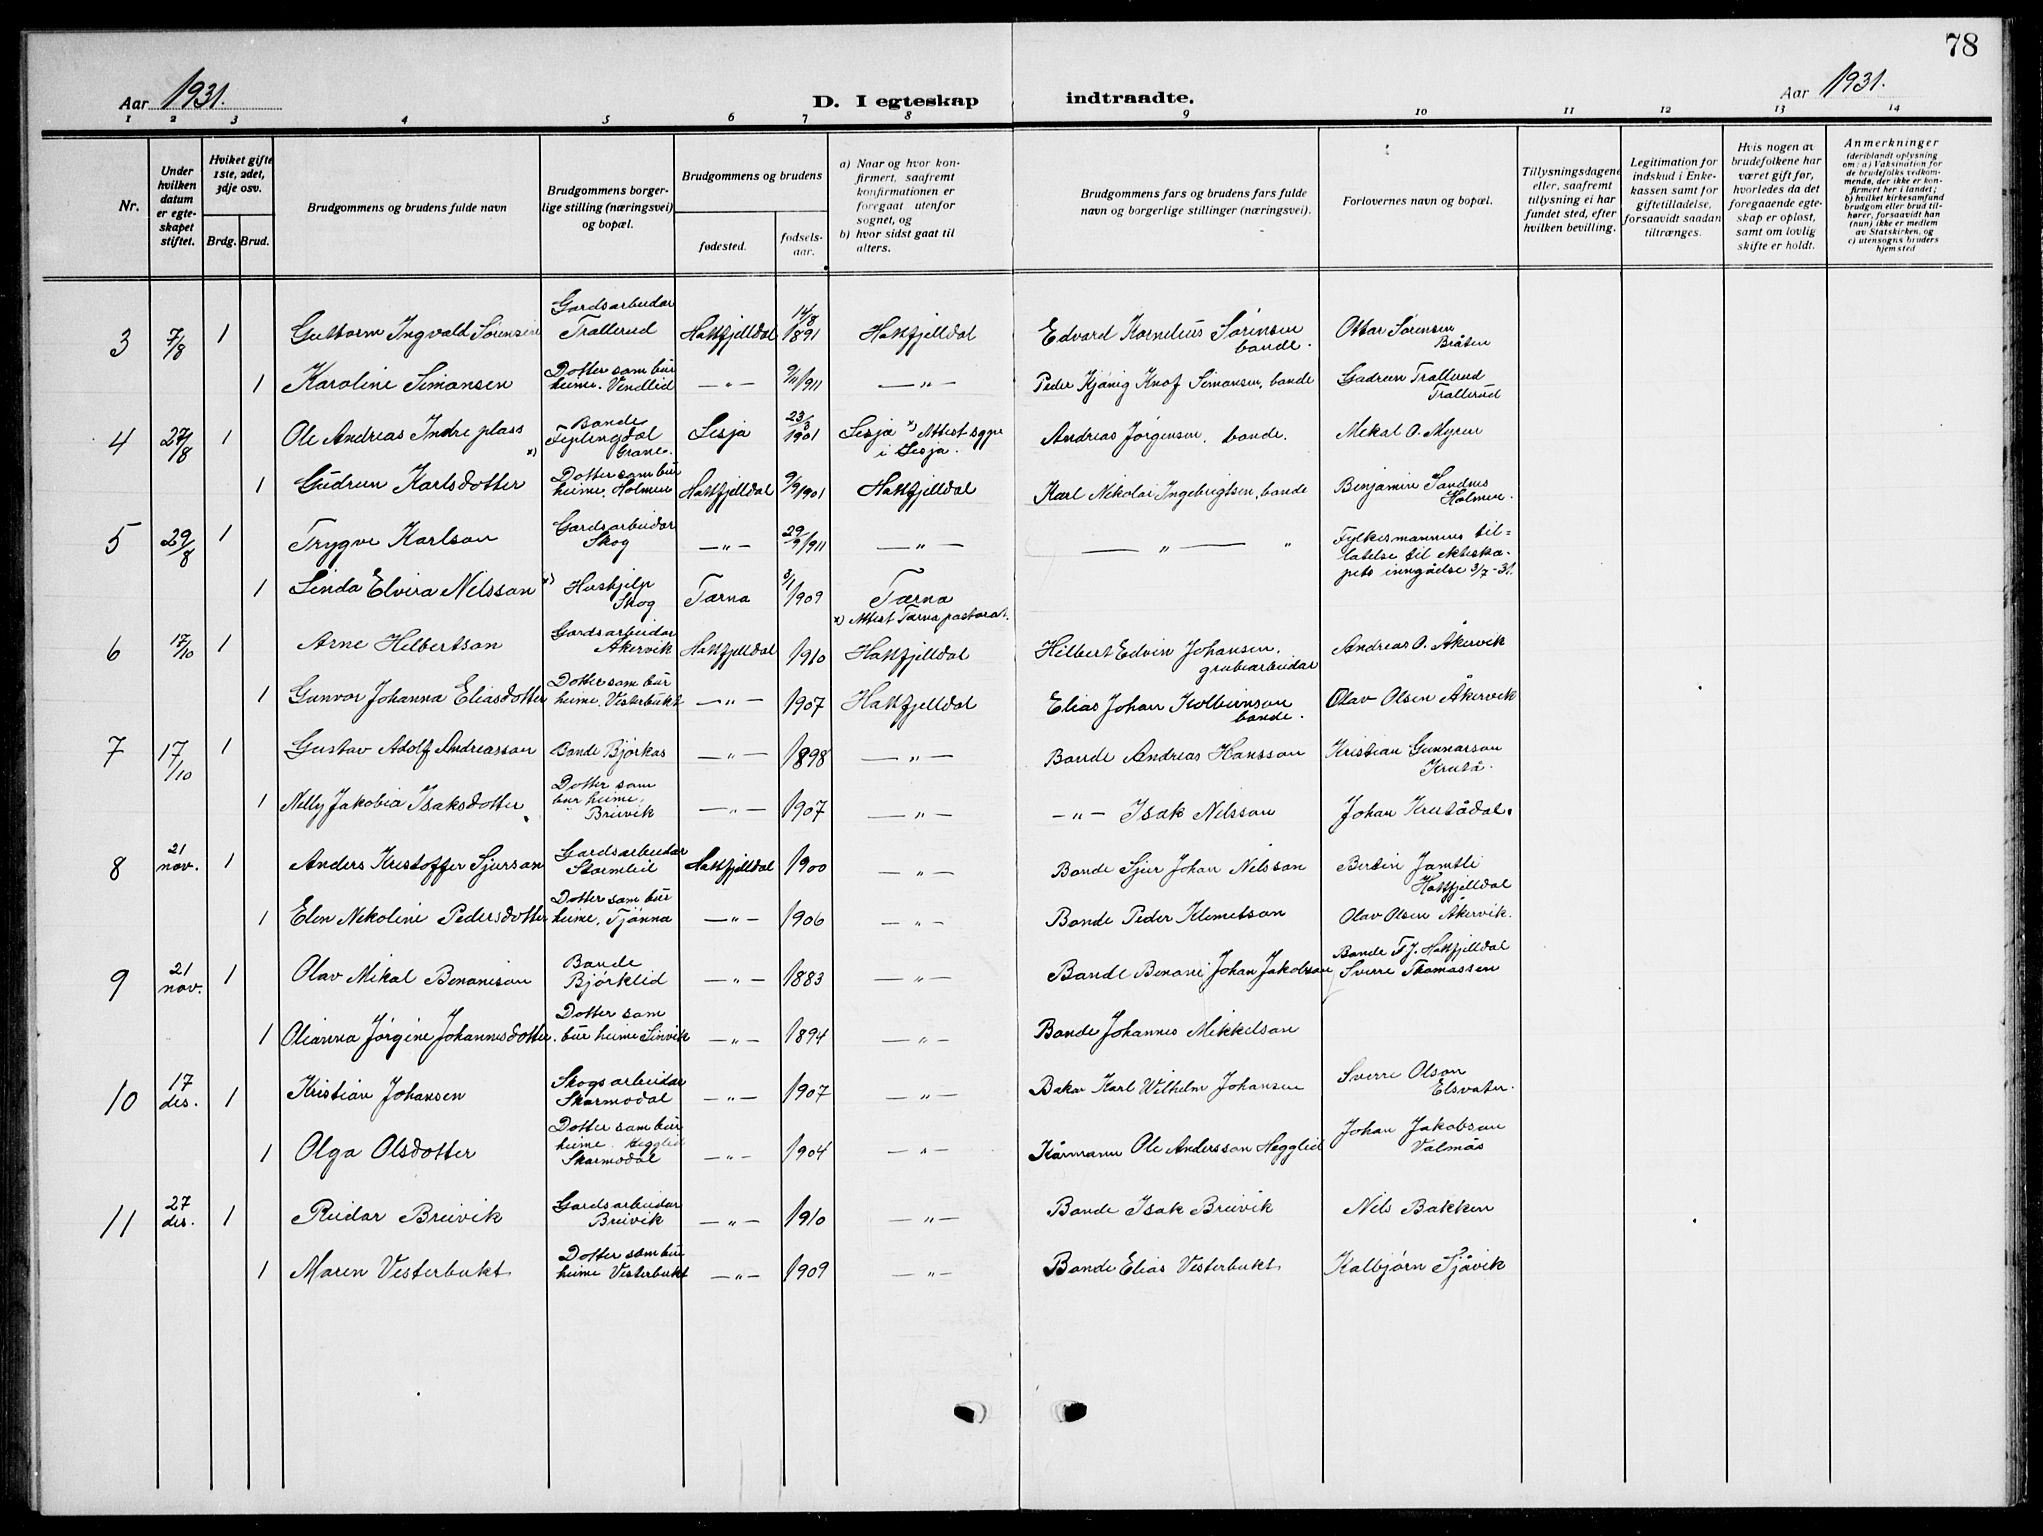 78
Aar 1931.
D. I egteskap indtraadte.
Aar 1931.
1 2 3 4 5 6 7 8 9 10 11 12 13 14
Nr.
Under hvilken datum er egteskapet stiftet.
Hviket gifte 1ste, 2det, 3dje osv.
Brdg. Brud.
Brudgommens og brudens fulde navn
Brudgommens borgerlige stilling (næringsvei) og bopæl.
Brudgommens og brudens
fødested.
fødselsaar.
a) Naar og hvor konfirmert, saafremt konfirmationen er foregaat utenfor sognet, og
b) hvor sidst gaat til alters.
Brudgommens fars og brudens fars fulde navn og borgerlige stillinger (næringsvei).
Forlovernes navn og bopæl.
Tillysningsdagene eller, saafremt tillysning ei har fundet sted, efter hvilken bevilling.
Legitimation for indskud i Enkekassen samt for giftetilladelse, forsaavidt saadan tiltrænges.
Hvis nogen av brudefolkene har været gift før, hvorledes da det foregaaende egteskap er opløst, samt om lovlig skifte er holdt.
Anmerkninger
(deriblandt oplysning om: a) Vaksination for de brudefolks vedkommende, der ikke er konfirmert her i landet; b) hvilket kirkesamfund brudgom eller brud tilhører, forsaavidt han (hun) ikke er medlem av Statskirken, og c) utensogns bruders hjemsted
3 7/8 1 Guttorm Ingvald Sørensen Gardsarbeidar Trallerud Hattfjelldal 14/8 1891 Hattfjelldal Edvard Kornelius Sørensen bonde. Ottar Sørensen Bråten
1 Karoline Simonsen Dotter som bur heime. Vendlid —"— 9/11 1911 —"— Peder Kjønig Knof Simonsen, bonde Gudrun Trallerud Trallerud
4 27/8 1 Ole Andreas Indreplass x) Bonde Fiplingdal Grane. Lesja 23/3 1901 Lesja x) Attest sgpr i Lesja. Andreas Jørgensen, bonde. Mekal O. Myren
1 Gudrun Karlsdotter Dotter som bur heime. Holmen Hattfjelldal 9/9 1901 Hattfjelldal Karl Nikolai Ingebrigtsen, bonde Benjamin Sandnes Holmen.
5 29/8 1 Trygve Karlson Gardsarbeidar Skog —"— 29/9 1911 —"— —"— " Fylkesmannens tillatelse til ekteskapets inngåelse 3/7-31.
1 Linda Elvira Nilsson x) Hushjelp Skog Tærna 3/1 1909 Tærna x) Attest Tærna pastorat.
6 17/10 1 Arne Hilbertson Gardsarbeidar Åkervik Hattfjelldal 1910 Hattfjelldal Hilbert Edvin Johansen. grubearbeidar Andreas O. Åkervik
1 Gunvor Johanna Eliasdotter Dotter som bur heime. Vesterbukt —"— 1907 Hattfjelldal Elias Johan Kolbeinson bonde. Olav Olsen Åkervik
7 17/10 1 Gustav Adolf Andreasson Bonde Bjørkås —"— 1898 —"— Bonde Andreas Hansson Kristian Gunnarson Krutå.
1 Nelly Jakobia Isaksdotter Dotter som bur heime, Breivik —"— 1907 —"— —"— Isak Nilsson Johan Krutådal.
8 21 nov. 1 Anders Kristoffer Sjurson Gardsarbeidar Stormlid Hattfjelldal 1900 —"— Bonde Sjur Johan Nilsson Bertin Jamtli Hattfjelldal
1 Elen Nikoline Pedersdotter Dotter som bur heime. Tjønna —"— 1906 —"— Bonde Peder Klemetson Olav Olsen Åkervik.
9 21 nov. 1 Olav Mikal Benonison Bonde Bjørklid —"— 1883 —"— Bonde Benoni Johan Jakobson Bonde F. J. Hattfjelldal Sverre Thomassen
1 Olianna Jørgine Johannesdotter. Dotter som bur heime Sinvik —"— 1894 —"— Bonde Johannes Mikkelson
10 17 des. 1 Kristian Johansen Skogsarbeidar Skarmodal —"— 1907 —"— Bakar Karl Wilhelm Johansen Sverre Olson Elsvatn.
1 Olga Olsdotter Dotter som bur heime. Hegglid Skarmodal —"— 1904 —"— Kårmann Ole Andersson Hegglid Johan Jakobson Valmås
11 27 des. 1 Reidar Breivik Gardsarbeidar Breivik —"— 1910 —"— Bonde Isak Breivik Nils Bakken
1 Maren Vesterbukt Dotter som bur heime Vesterbukt —"— 1909 —"— Bonde Elias Vesterbukt Kolbjørn Sjåvik